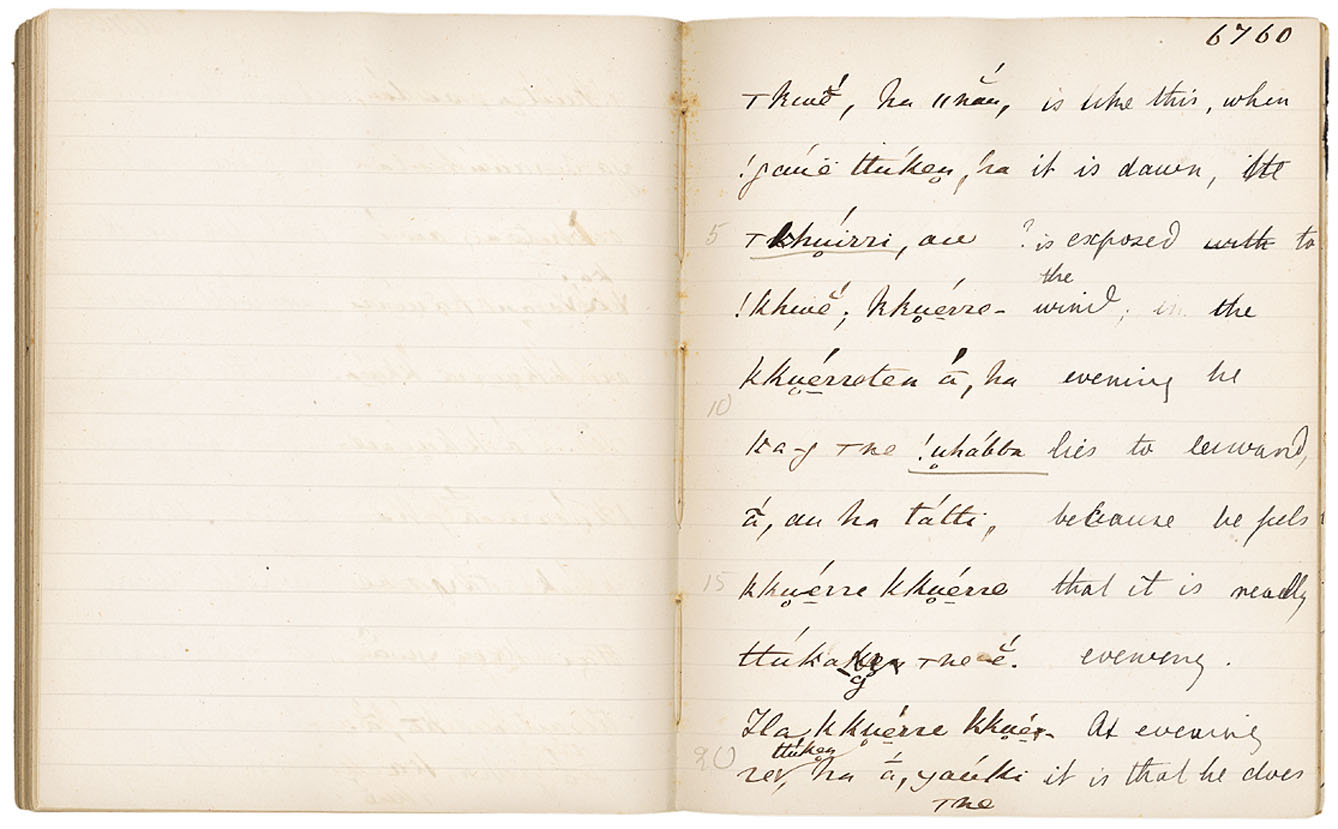 6760
⊤kuĕ́, ha ǁnắu, is like this, when
!gáuë ttúken, ha it is dawn,
5 ⊤khuírri, au ? is exposed with to
the
!khuĕ́; kkuérre- wind; in the
kkuérreten ā́, ha evening he
10
ka-g ⊤ne !uhábba lies to leeward,
ā́, au ha tátti, because he feels
15 kkuérre kkuérre that it is really
⊤ne ĕ́. evening.
Ha kkuérre kkuér- At evening
ttúken
20 re, ha ā́, gaúki it is that he does
⊤ne